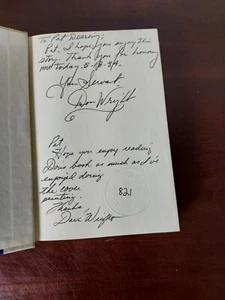 To Pat Dearing:
Pat, I hope you enjoy this
story. Thank you for honoring
me today.
Your Servant
Don Wright
Pat
Hope you enjoy reading
Dons book as much as I
enjoyed doing
the cover
painting.
Thanks
Dave Wright
821